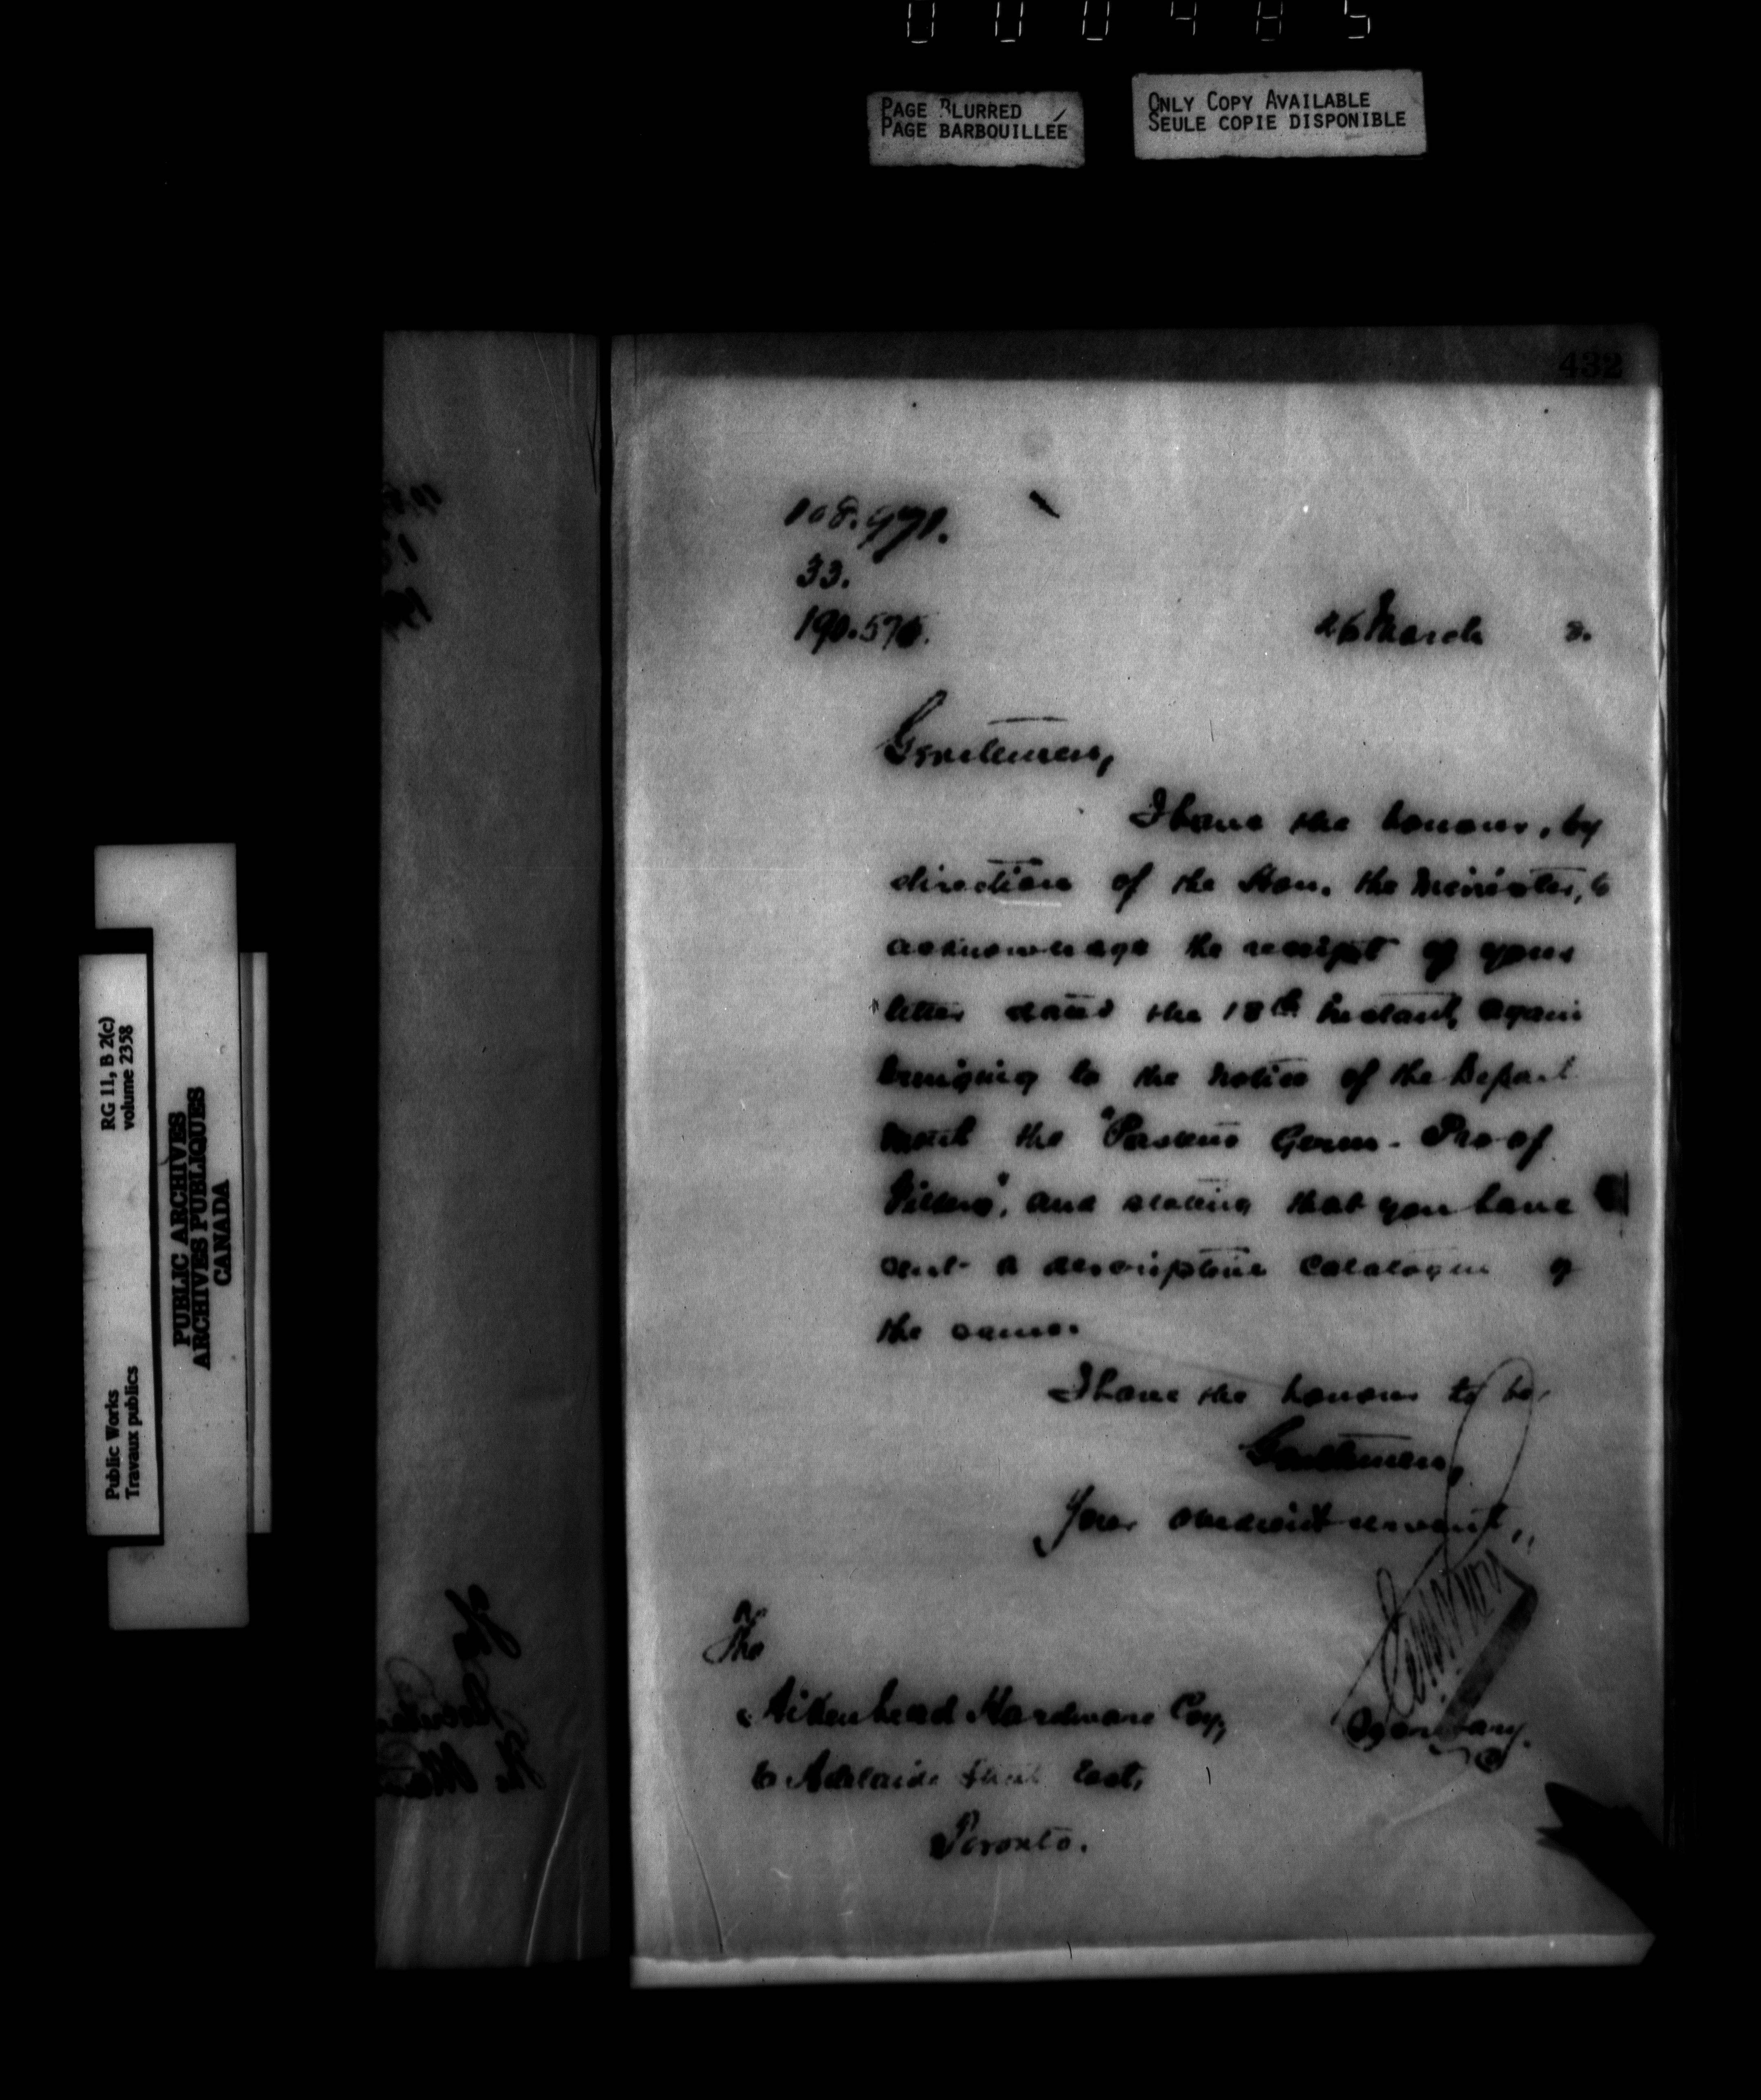 000485
PAGE BLURRED
PAGE BARBOUILLÉE
ONLY COPY AVAILABLE
SEULE COPIE DISPONIBLE
RG 11, B 2(c)
volume 2358
Public Works
Travaux publics
PUBLIC ARCHIVES
ARCHIVES PUBLIQUES
CANADA
432
108.971.
33.
190.575.
26 March 8.
Gentlemen,
I have the honour, by
direction of the Hon. the Minister, to
acknowledge the receipt of your
letter dated the 18th instant, again
bringing to the notice of the Depart
ment the "Pasteur Germ-Proof
Filters", and stating that you have
sent a descriptive catalogue of
the same.
I have the honour to be,
Gentlemen,
Your obedient servant,
Secretary.
The
Aikenhead Hardware Coy,
6 Adelaide Street East,
Toronto.